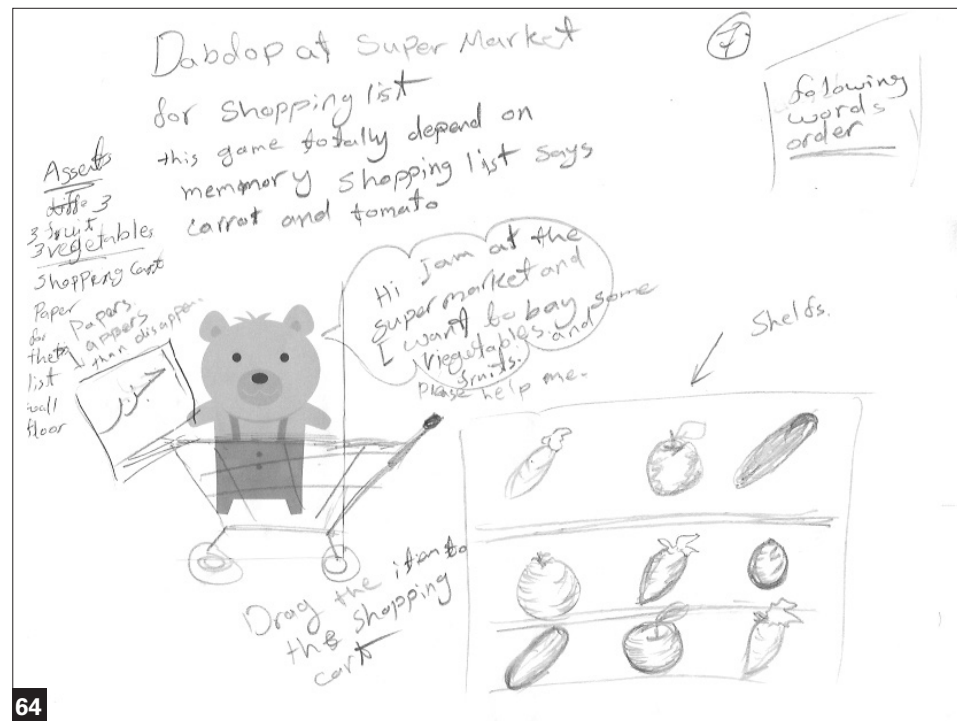 Dabdop at Super Market
for Shopping list
this game totally depend on
memmory shopping list says
carrot and tomato
7
following
words
order
Asserts
3
3 fruit
3 vegetables
Shopping Cart
Paper
for
the
list
wall
floor
Papers
appers
than disappear
جزر
Hi jam at the
supermarket and
I want to bay some
viegutables. and
fruits.
please help me.
Shelfs.
Drag the item to
the shopping
cart
64